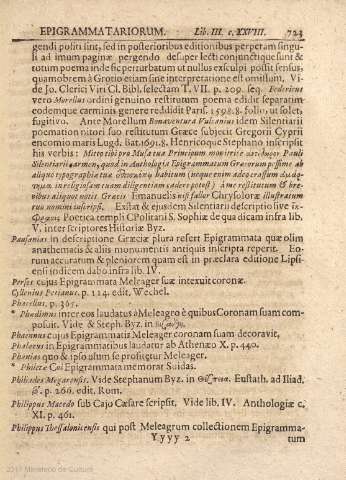 EPIGRAMMATARIORUM. Lib. III. c. XXVIII. 723
gendi positi sint, sed in posterioribus editionibus perperam singu-
li ad imum paginæ pergendo desuper lecti conjunctique sunt &
totum poema inde sic perturbatum ut nullus exsculpi possit sensus,
quamobrem à Grotio etiam sine interpretatione est omissum. Vi-
de Jo. Clerici Viri Cl. Bibl. selectam T. VII. p. 209. seq. Federicus
vero Morellus ordini genuino restitutum poema edidit separatim
eodemque carminis genere reddidit Paris. 1598.8. folio, ut solet,
fugitivo. Ante Morellum Bonaventura Vulcanius idem Silentiarii
poemation nitori suo restitutum Græce subjecit Gregorii Cyprii
encomio maris Lugd. Bat. 1691.8. Henricoque Stephano inscripsit
his verbis: Mitto tibi pro Musa tua Principum monitrice
Silentiarii carmen, quod in Anthologia Epigrammatum Græcorum pessime ab
aliquo typographia tuæ habitum (neque enim adeo crassum
in religiosam tuam diligentiam cadere potest) à me restitutum & bre-
vibus aliquot notis Græcis Emanuelis nisi fallor Chrysoloræ illustratum
tuo nomini inscripsi. Exstat & ejusdem Silentiarii descriptio sive
Poetica templi CPolitani S. Sophiæ de qua dicam infra lib.
V. inter scriptores Historiæ Byz.
Pausanias in descriptione Græciæ plura refert Epigrammata quæ olim
anathematis & aliis monumentis antiquis inscripta reperit. Eo-
rum accuratum & pleniorem quam est in præclara editione Lipsi-
ensi indicem dabo infra lib. IV.
Perses cujus Epigrammata Meleager suæ intexuit coronæ.
Cyllenius Petianus. p. 124. edit. Wechel.
Phaellus. p. 365.
* Phaedimus inter eos laudatus à Meleagro è quibus Coronam suam com-
posuit. Vide & Steph. Byz. in
Phaennus cujus Epigrammatis Meleager coronam suam decoravit,
Phalacus in Epigrammatibus laudatur ab Athenæo X. p. 440.
Phanias quo & ipso usum se profitetur Meleager.
* cui Epigrammata memorat Suidas.
Philiades Megarensis. Vide Stephanum Byz. in Eustath. ad Iliad.
p. 266. edit. Rom.
Philippus Macedo sub Cajo Cæsare scripsit. Vide lib. IV. Anthologiæ c.
XI. p. 461.
Philippus Thessalonicensis qui post Meleagrum collectionem Epigramma-
Yyyy 2 tum
2017 Ministerio de Cultura